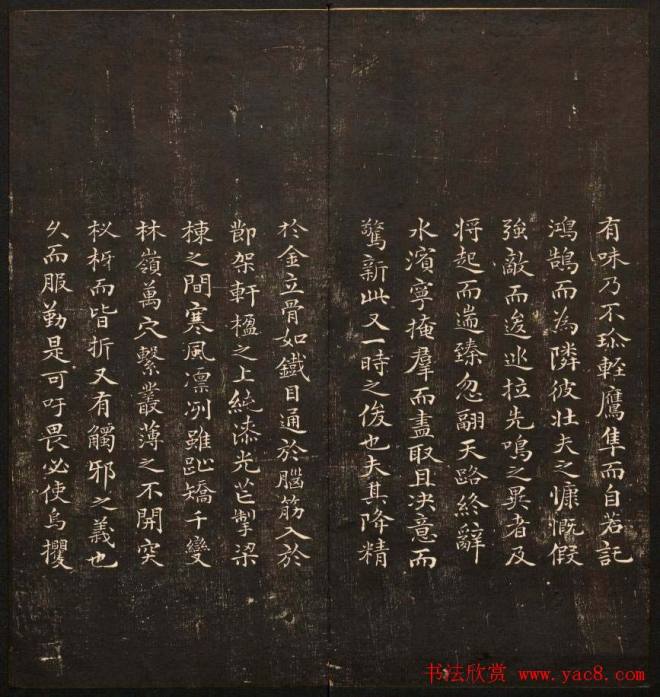 有味乃不珎輕鷹隼而自若託
鴻鵠而為隣彼壯夫之慷慨假
強敵而逡巡拉先鳴之異者及
將起而遄臻忽翮天路終辭
水濱寧掩羣而盡取且決意而
驚新此又一時之俊也夫其降精
於金立骨如鐵目通於腦筋入於
節架軒楹之上純漆光芒掣梁
棟之間寒風凛冽雖趾矯千變
林嶺萬穴繫叢薄之不開突
杈枒而皆折又有觸邪之義也
久而服勤是可吁畏必使烏攫
书法欣赏 www.yac8.com